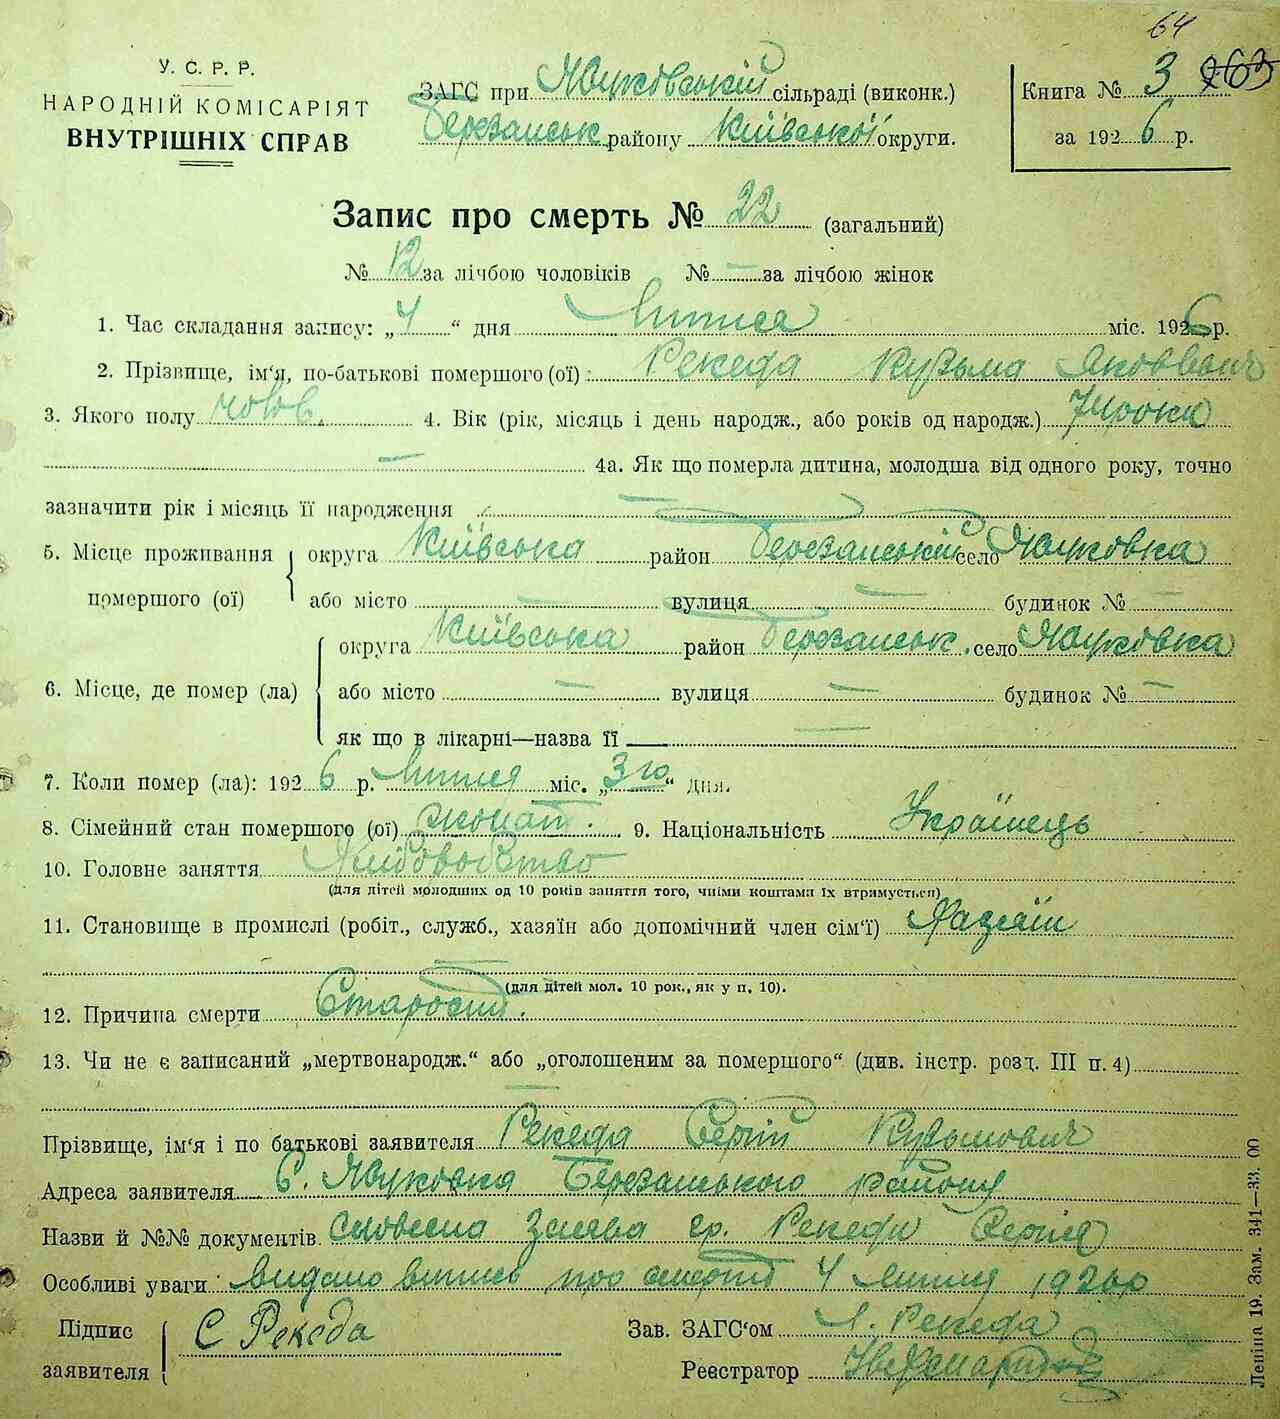 64
У. С. Р. Р.
НАРОДНІЙ КОМІСАРІЯТ
ВНУТРІШНІХ СПРАВ
ЗАГС при Жуковській сільраді (виконк.)
Березанськ району Київської округи.
Книга № 3 263
за 1926 р.
Запис про смерть № 22 (загальний)
№ 12 за лічбою чоловіків № — за лічбою жінок
1. Час складання запису: „4“ дня Липня міс. 1926 р.
2. Прізвище, ім‘я, по-батькові помершого (ої): Рекеда Кузьма Яковович
3. Якого полу чолов. 4. Вік (рік, місяць і день народж., або років од народж.) 74 роки
— 4а. Як що померла дитина, молодша від одного року, точно
зазначити рік і місяць її народження —
5. Місце проживання помершого (ої) округа Київська район Березанський село Жуковка
або місто — вулиця — будинок № —
6. Місце, де помер (ла) округа Київська район Березанськ. село Жуковка
або місто — вулиця — будинок № —
як що в лікарні—назва її —
7. Коли помер (ла): 1926 р. Липня міс. „3го“ дня.
8. Сімейний стан помершого (ої) жонат. 9. Національність Українець
10. Головне заняття Хліборобство
(для дітей молодших од 10 років заняття того, чиїми коштами їх втримується)
11. Становище в промислі (робіт., служб., хазяїн або допомічний член сім‘ї) Хазяїн
(для дітей мол. 10 рок., як у п. 10).
12. Причина смерти Старости.
13. Чи не є записаний „мертвонародж.“ або „оголошеним за помершого“ (див. інстр. розд. III п. 4)
—
Прізвище, ім‘я і по батькові заявителя Рекеда Сергій Кузьмович
Адреса заявителя С. Жуковка Березанського району
Назви й №№ документів словесна заява гр. Рекеди Сергія
Особливі уваги видано випис про смерть 4 липня 1926 р
Підпис заявителя С Рекеда
Зав. ЗАГС‘ом Рекеда
Реєстратор
Леніна 19. Зам. 341—33. 00